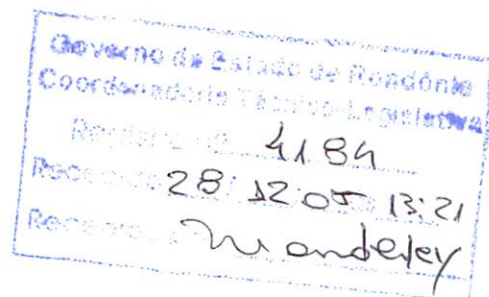 Governo do Estado de Rondônia
Coordenadoria Técnico-Legislativa
Registro nº 4184
28 12 05 13:21
Wanderley